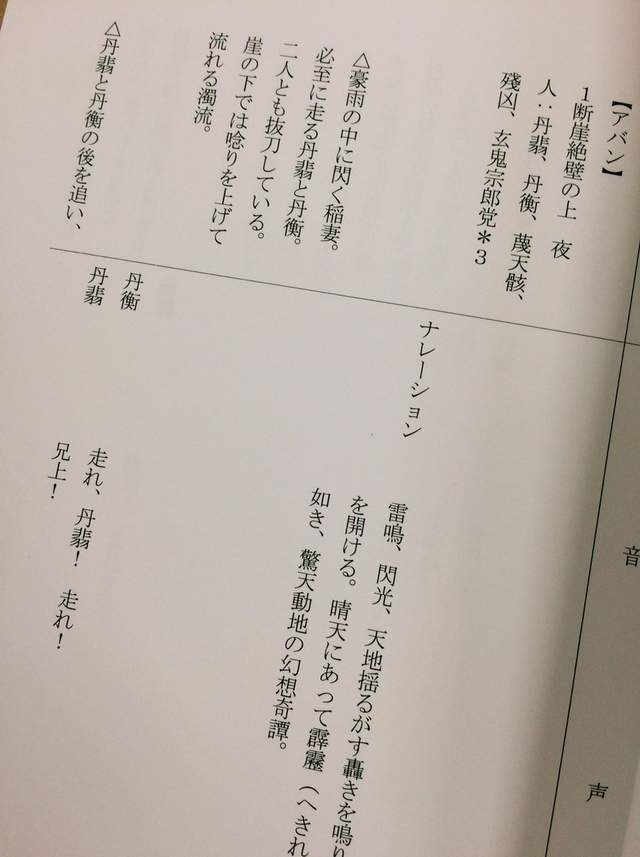 【アバン】
1断崖絶壁の上　夜
人：丹翡、丹衡、蔑天骸、
殘凶、玄鬼宗郎党＊3
△豪雨の中に閃く稲妻。
必至に走る丹翡と丹衡。
二人とも抜刀している。
崖の下では唸りを上げて
流れる濁流。
△丹翡と丹衡の後を追い、
音　声
ナレーション
雷鳴、閃光、天地揺るがす轟きを鳴り
を開ける。晴天にあって霹靂（へきれ
如き、驚天動地の幻想奇譚。
丹衡
走れ、丹翡！　走れ！
丹翡
兄上！